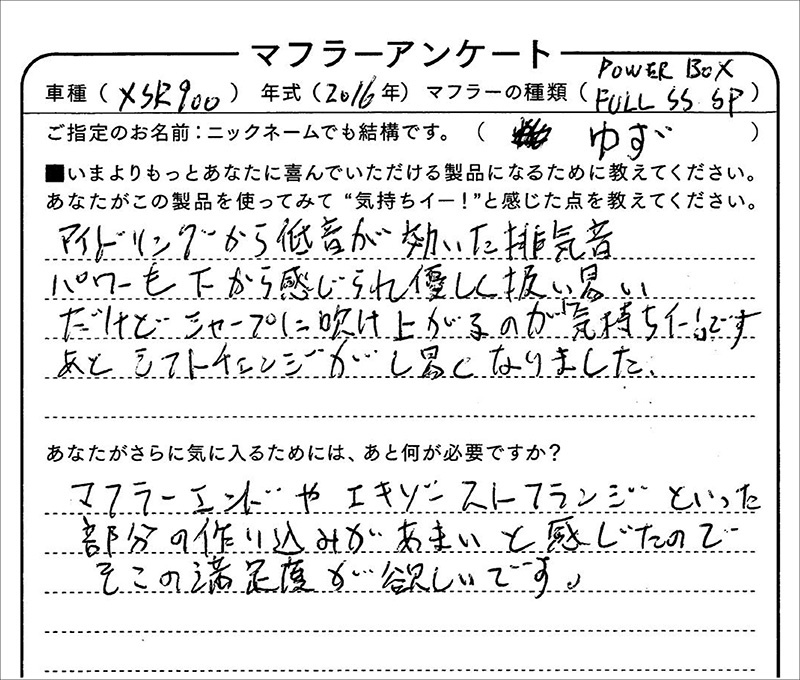 マフラーアンケート
車種（XSR900）　年式（2016年）　マフラーの種類（POWER BOX FULL SS SP）
ご指定のお名前：ニックネームでも結構です。（　ゆず　）
■いまよりもっとあなたに喜んでいただける製品になるために教えてください。
あなたがこの製品を使ってみて“気持ちイー！”と感じた点を教えてください。
アイドリングから低音が効いた排気音
パワーも下から感じられ優しく扱い易い
だけどシャープに吹け上がるのが“気持ちイー！”です
あとシフトチェンジがし易くなりました。
あなたがさらに気に入るためには、あと何が必要ですか？
マフラーエンドやエキゾーストフランジといった
部分の作り込みがあまいと感じたので
そこの満足度が欲しいです。